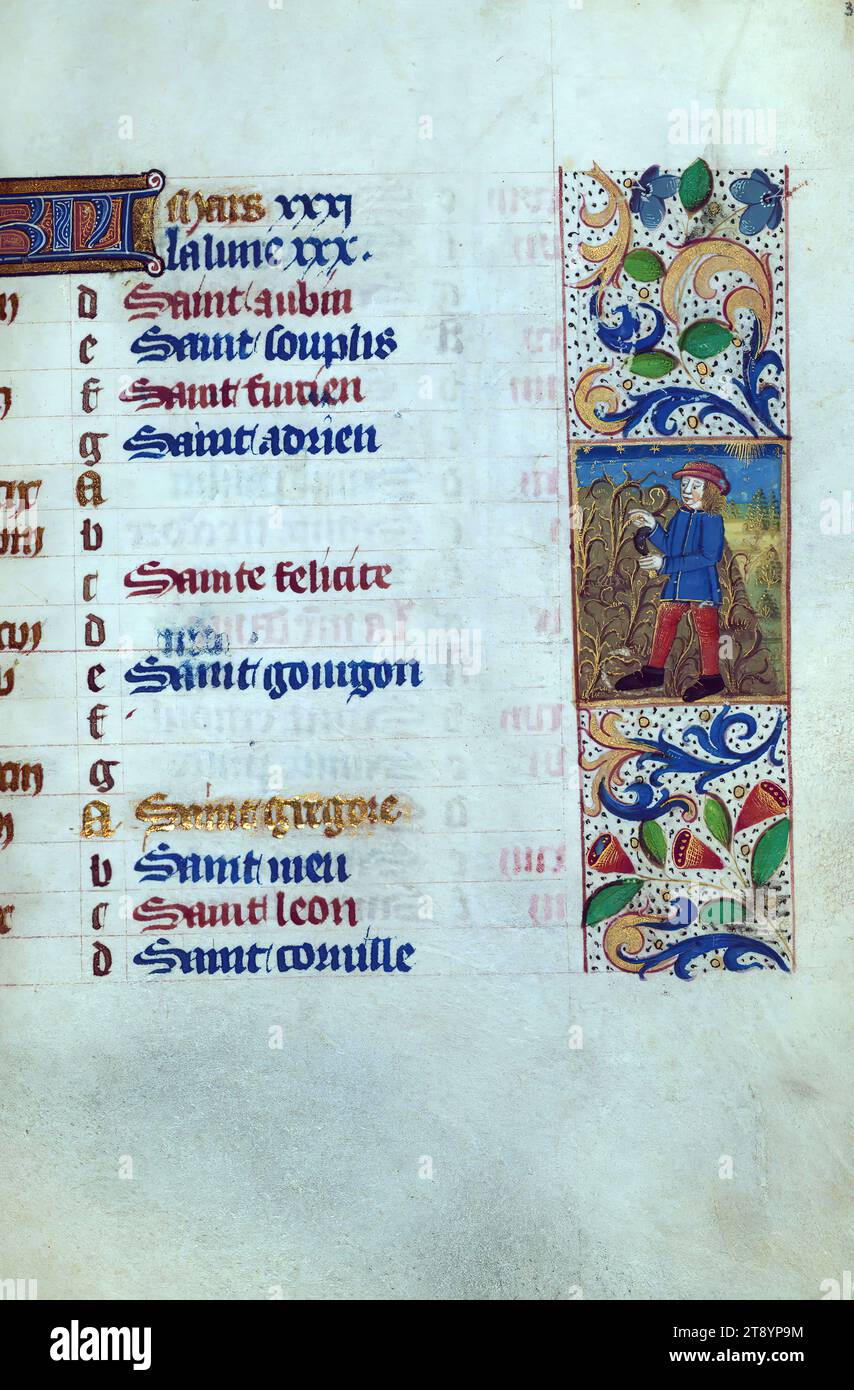 3
KL Mars xxxj
la lune xxx.
d Saint aubin
e Saint souplis
f Saint fuicien
g Saint adrien
ix A
b
c Sainte felicite
xvij d
e Saint gourgon
f
g
A Saint gregore
b Saint meu
c Saint leon
d Saint cornille
alamy
Image ID: 2T8YP9M
www.alamy.com